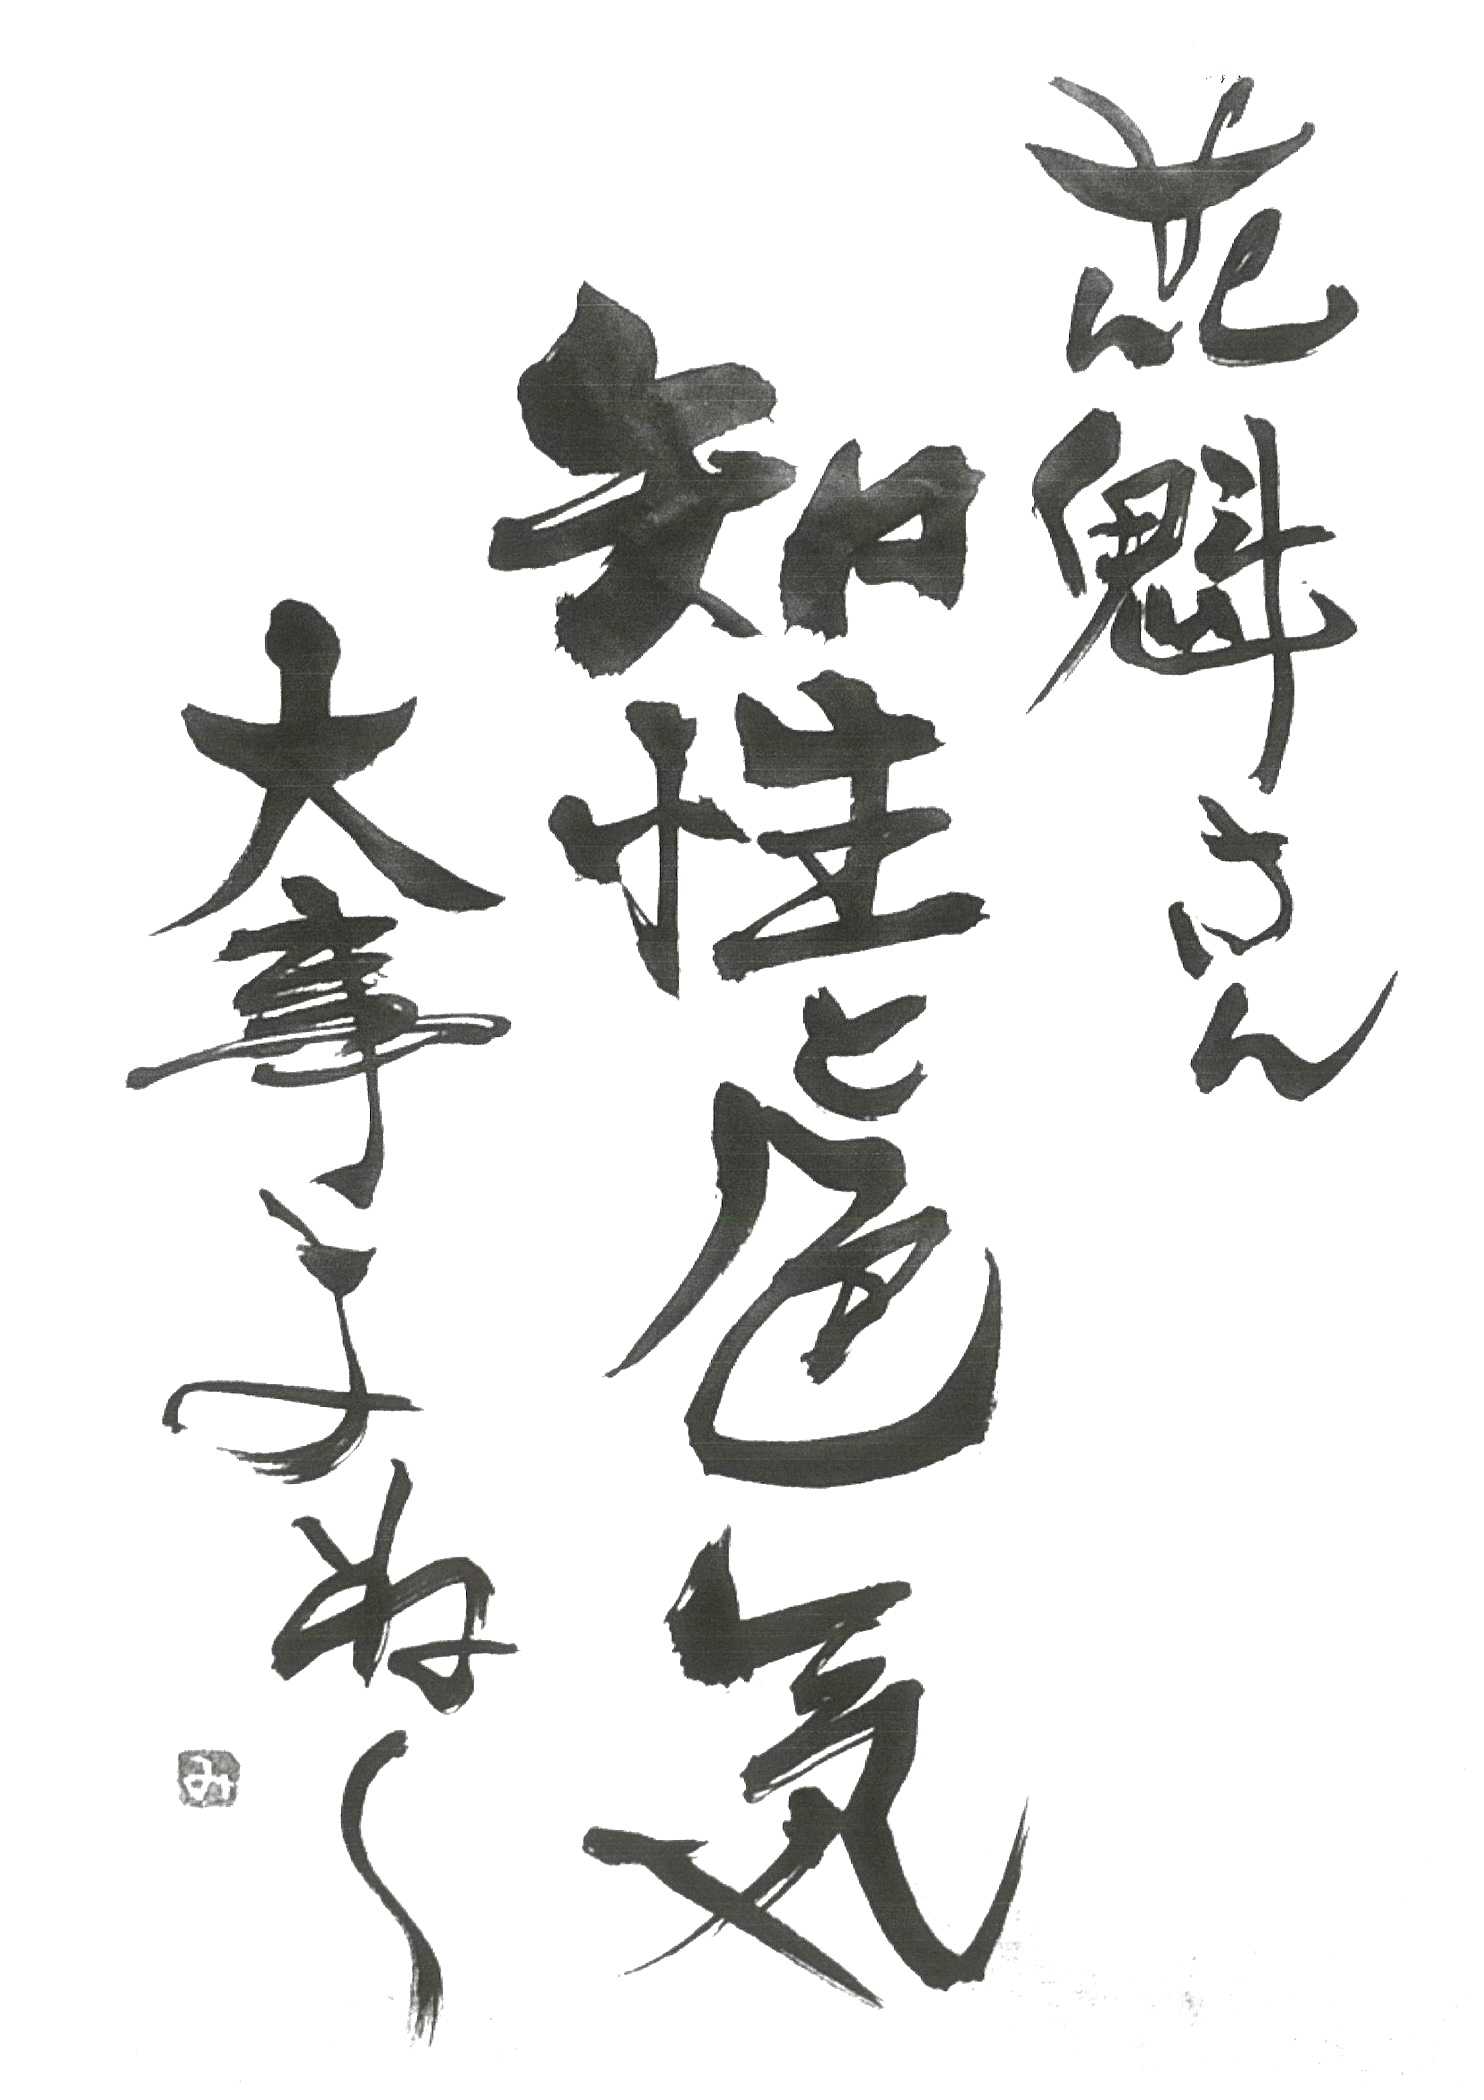 花魁さん
知性と色気
大事よぉ〜
み